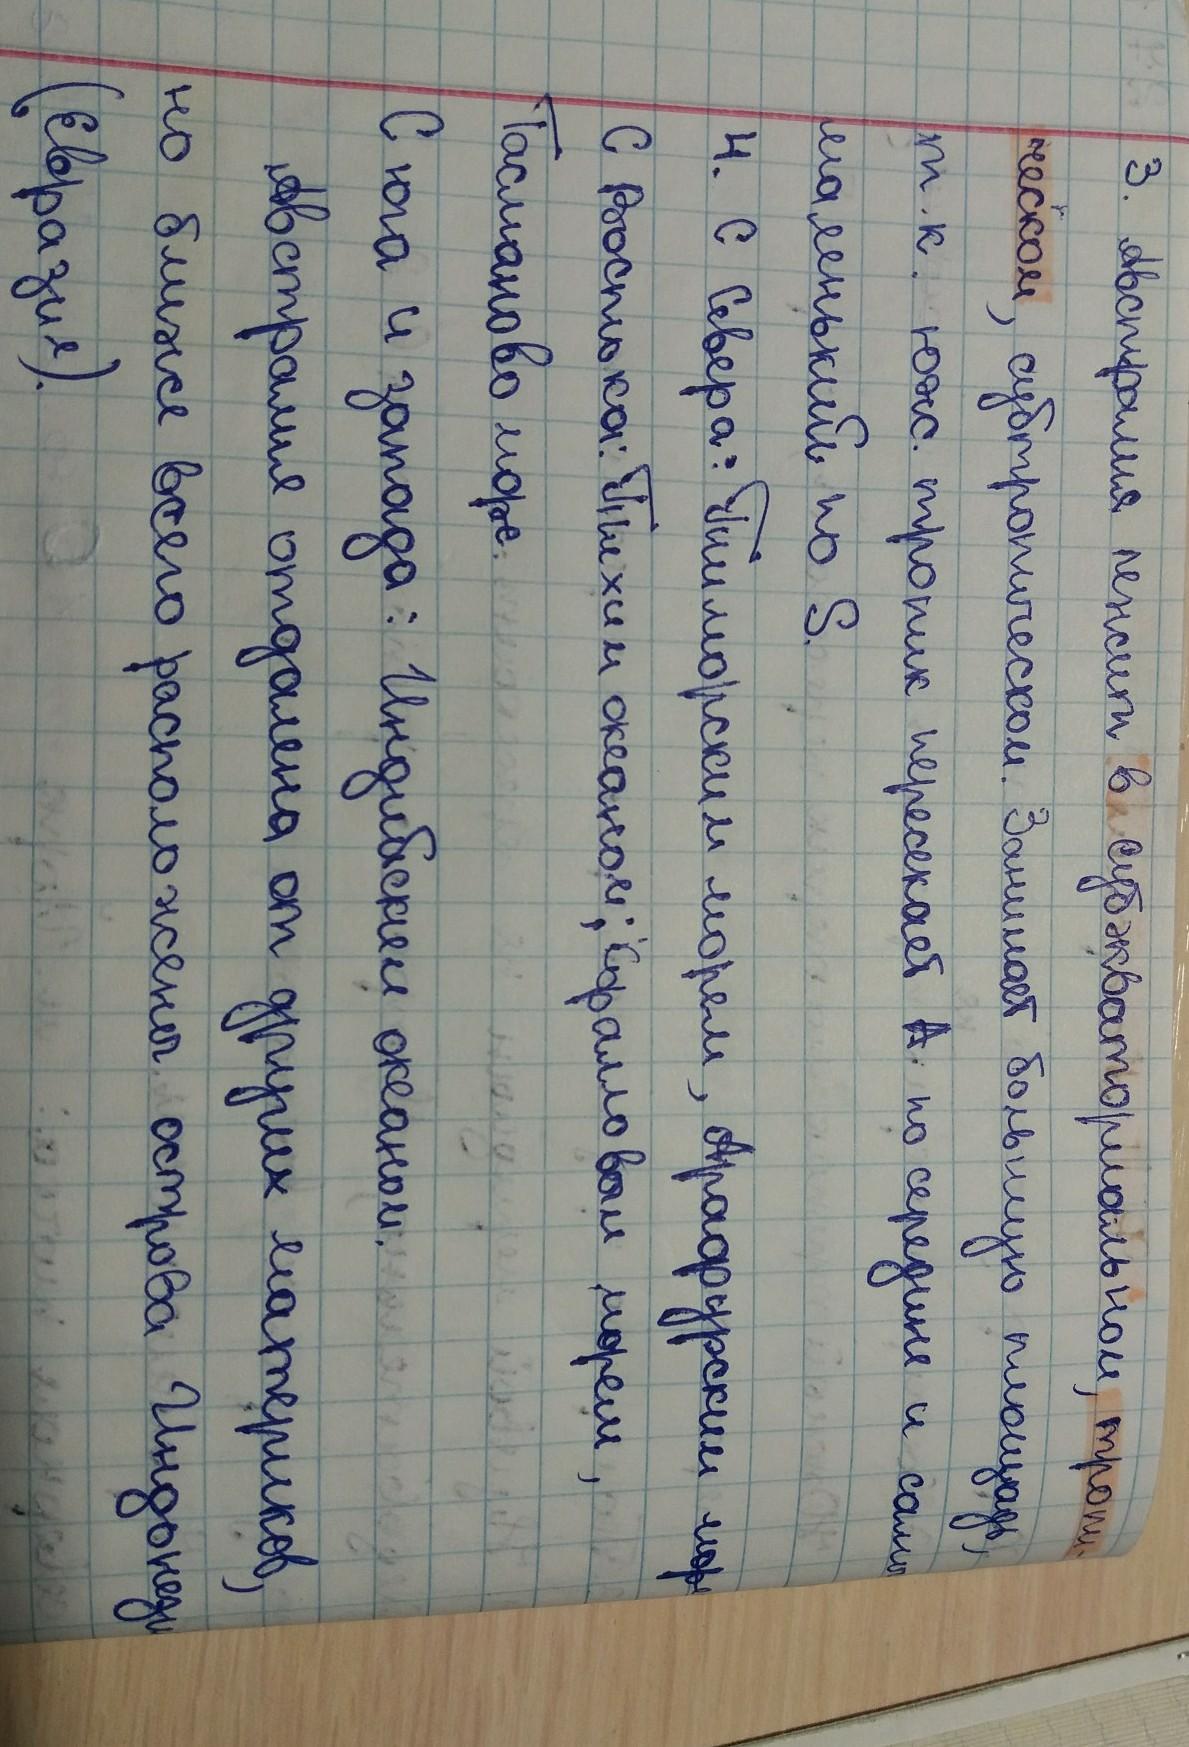 3. Австралия лежит в субэкваториальном, тропи-
ческом, субтропическом. Занимает большую площадь,
т.к. юж. тропик пересекает А по середине и самы
маленький по S.
4. С Севера: Тиморским морем, Арафурским мор
С Востока: Тихим океаном; Коралловым морем,
Тасманово море.
С юга и запада: Индийским океаном.
Австралия отдалена от других материков,
но ближе всего расположены острова Индонези
(Евразия).